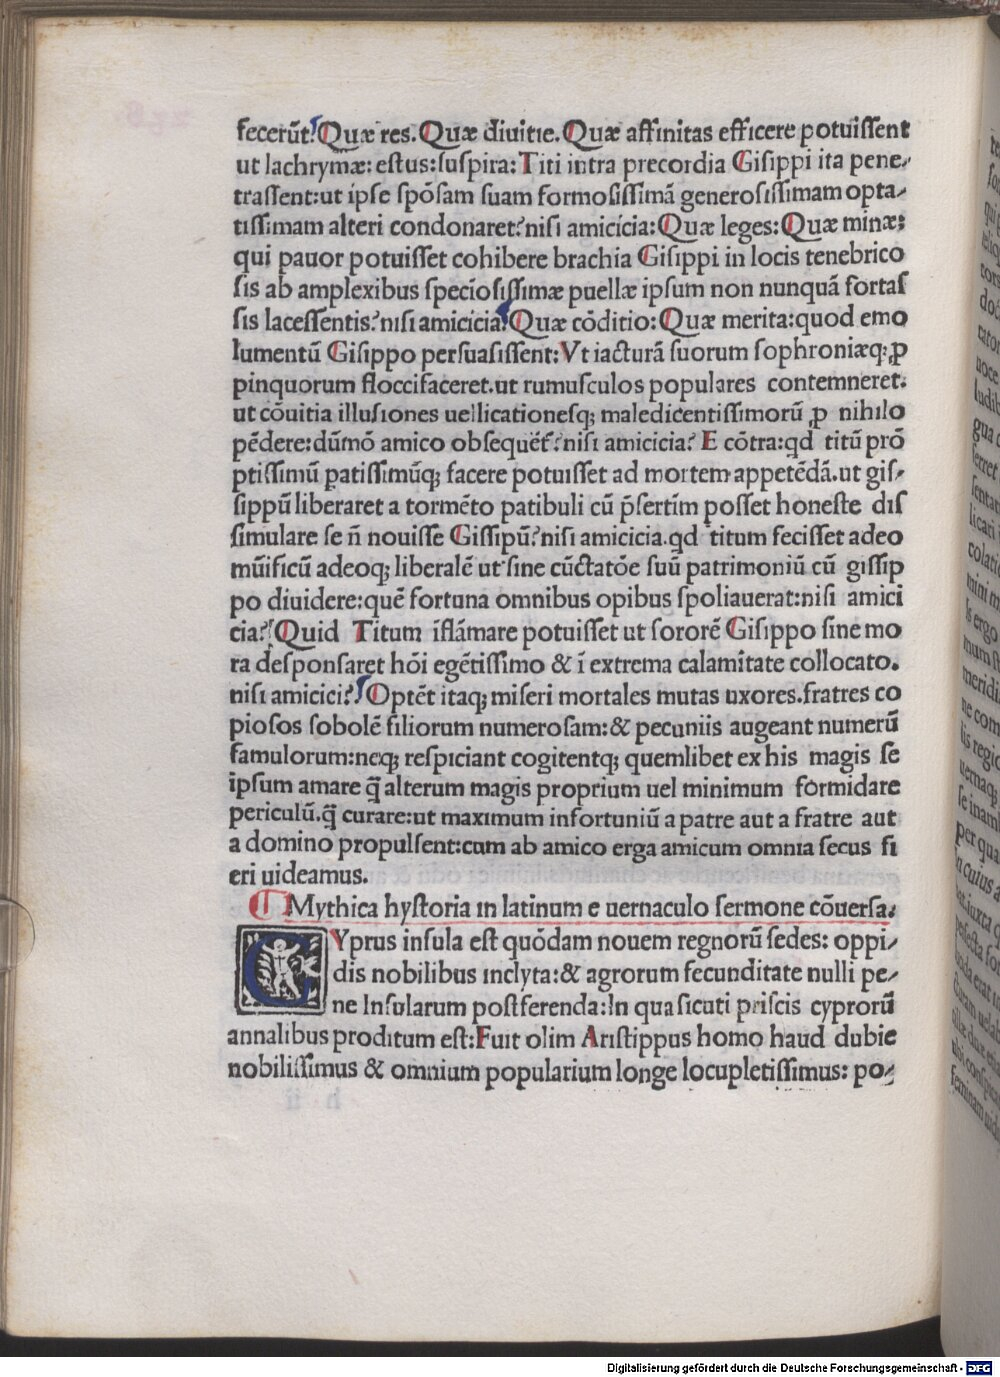 fecerūt? Quæ res. Quæ diuitie. Quæ affinitas efficere potuiſſent
ut lachrymæ: eſtus: ſuſpira: Titi intra precordia Giſippi ita pene-
traſſent: ut ipſe ſpōſam ſuam formoſiſſimā generoſiſſimam opta-
tiſſimam alteri condonaret? niſi amicicia: Quæ leges: Quæ minæ:
qui pauor potuiſſet cohibere brachia Giſippi in locis tenebrico
ſis ab amplexibus ſpecioſiſſimæ puellæ ipſum non nunquā fortaſ
ſis laceſſentis? niſi amicicia? Quæ cōditio: Quæ merita: quod emo
lumentū Giſippo perſuaſiſſent: Vt iacturā ſuorum ſophroniæq; ꝓ
pinquorum floccifaceret. ut rumuſculos populares contemneret.
ut cōuitia illuſiones uellicationeſq; maledicentiſſimorū ꝓ nihilo
pēdere: dūmō amico obſequēt? niſi amicicia? E cōtra: qd titū prō
ptiſſimū patiſſimūq; facere potuiſſet ad mortem appetēdā. ut giſ-
ſippū liberaret a tormēto patibuli cū p̄ſertim poſſet honeſte diſ
ſimulare ſe n̄ nouiſſe Giſſipū? niſi amicicia. qd titum feciſſet adeo
mūificū adeoq; liberalē ut ſine cūctatōe ſuū patrimoniū cū giſſip
po diuidere: quē fortuna omnibus opibus ſpoliauerat: niſi amici
cia? Quid Titum īflāmare potuiſſet ut ſororē Giſippo ſine mo
ra deſponſaret hōi egētiſſimo & ī extrema calamitate collocato.
niſi amicici? Optēt itaq; miſeri mortales mutas uxores. fratres co
pioſos ſobolē filiorum numeroſam: & pecuniis augeant numerū
famulorum: neq; reſpiciant cogitentq; quemlibet ex his magis ſe
ipſum amare q̄ alterum magis proprium uel minimum formidare
periculū. q̄ curare: ut maximum infortuniū a patre aut a fratre aut
a domino propulſent: cum ab amico erga amicum omnia ſecus fi
eri uideamus.
Mythica hyſtoria in latinum e uernaculo ſermone cōuerſa.
CYprus inſula eſt quōdam nouem regnorū ſedes: oppi-
dis nobilibus inclyta: & agrorum fecunditate nulli pe-
ne Inſularum poſtferenda: In qua ſicuti priſcis cyprorū
annalibus proditum eſt: Fuit olim Ariſtippus homo haud dubie
nobiliſſimus & omnium popularium longe locupletiſſimus: po-
Digitalisierung gefördert durch die Deutsche Forschungsgemeinschaft - DFG